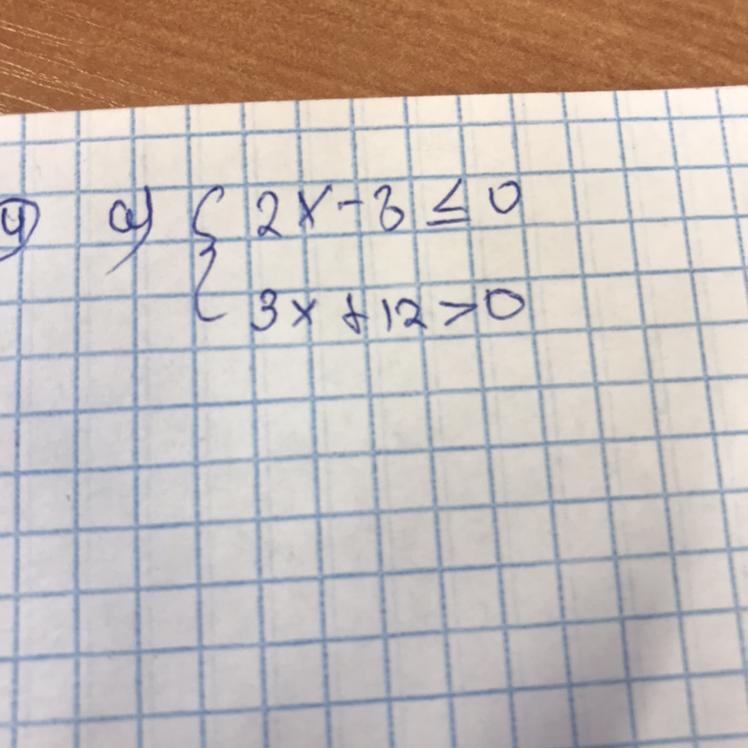 4) а) { 2x - 3 ≤ 0
3x + 12 > 0